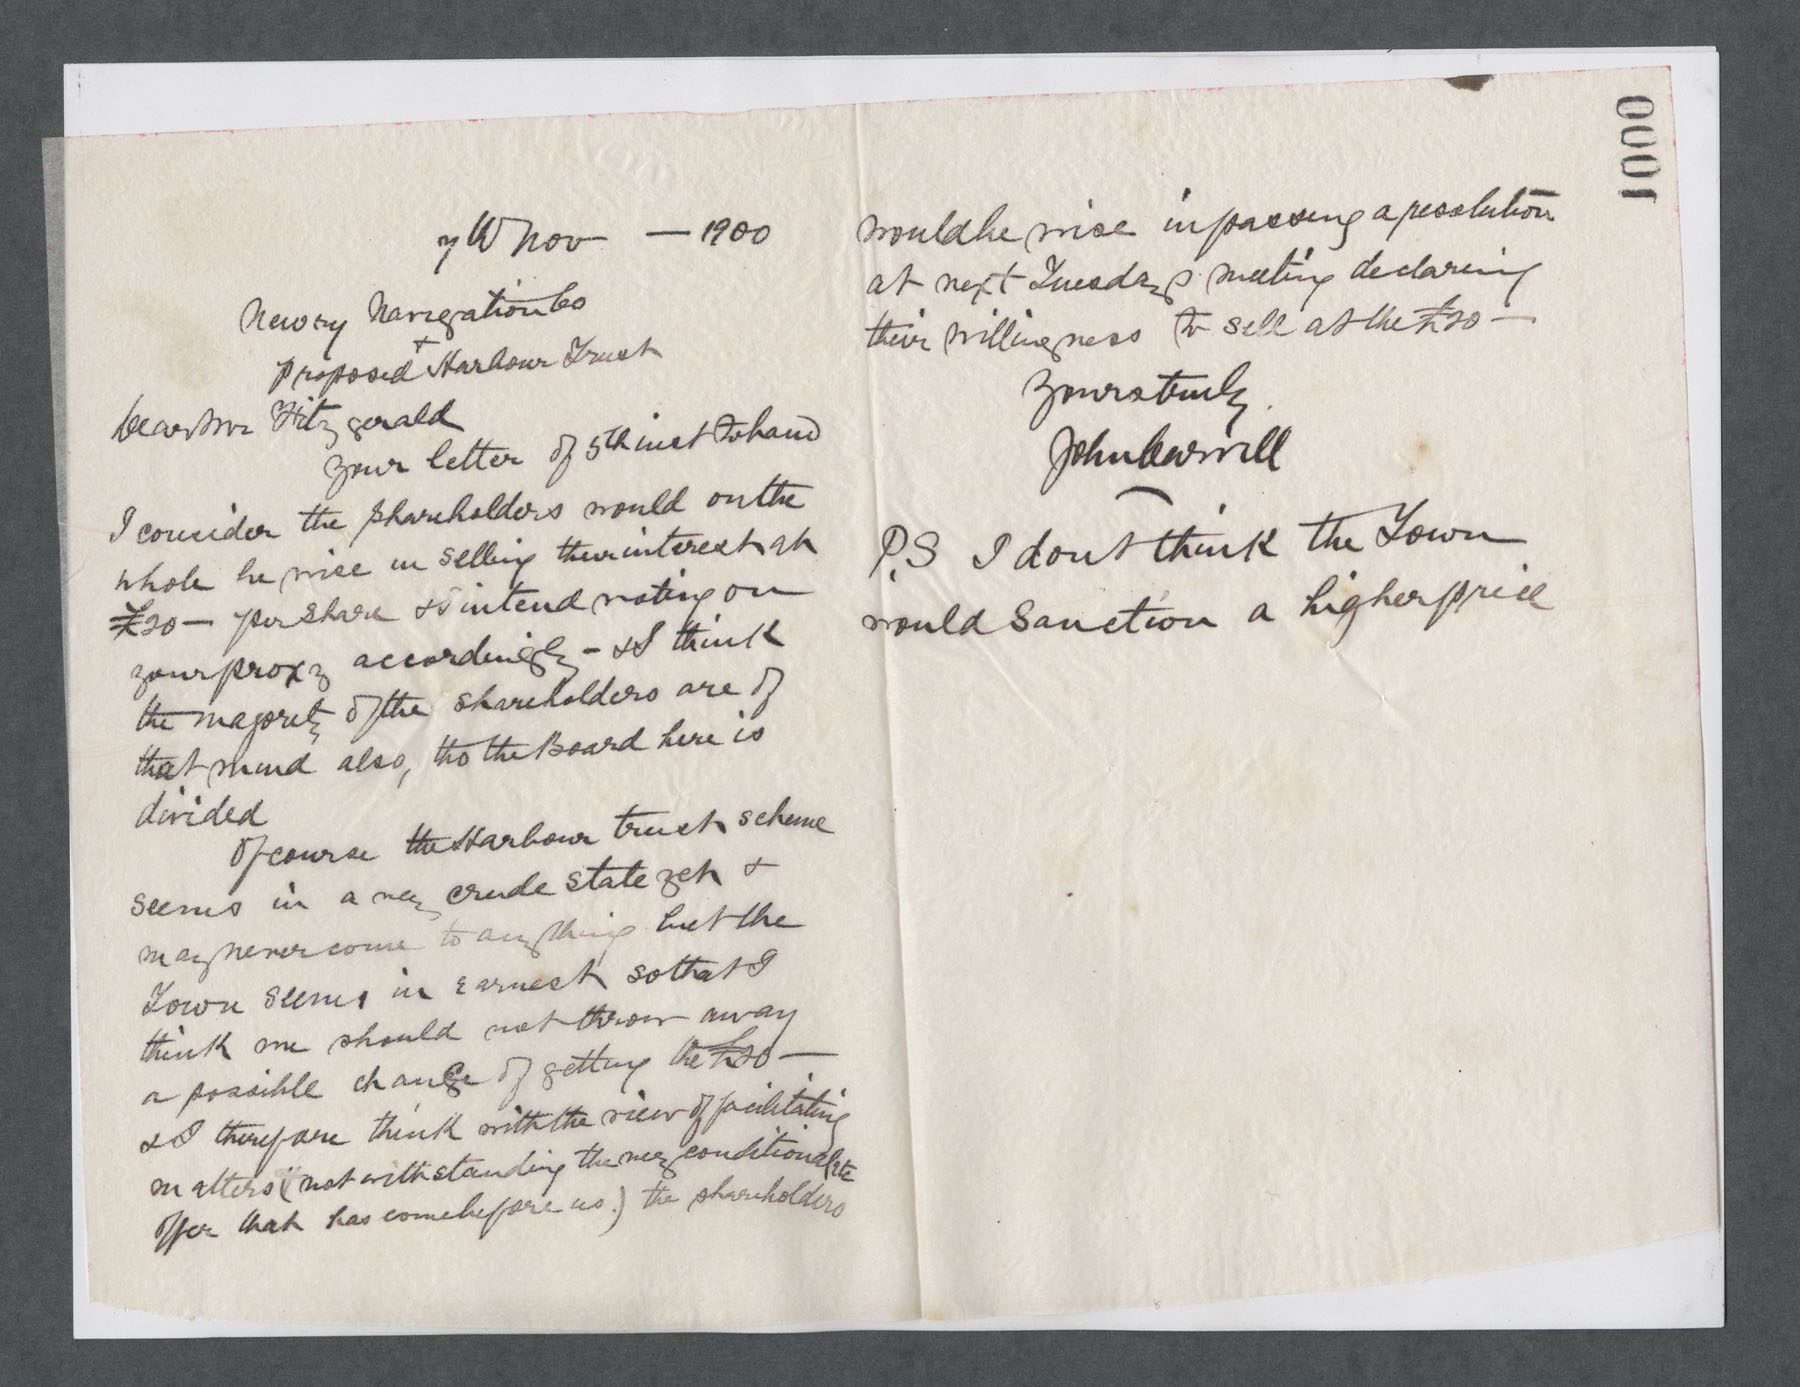 7th Nov — 1900
Newry Navigation Co
+
proposed Harbour Trust
Dear Mr Fitzgerald
Your letter of 5th inst to hand
I consider the shareholders would on the
whole be wise in selling their interest at
£20 — per share & I intend voting on
your proxy accordingly — & I think
the majority of the shareholders are of
that mind also, tho the Board here is
divided
Of course the Harbour trust scheme
seems in a very crude state yet &
may never come to anything but the
Town seems in earnest so that I
think we should not throw away
a possible chance of getting the £20 —
& I therefore think with the view of facilitating
matters (notwithstanding the very conditional
offer that has come before us.) the shareholders
would be wise in passing a resolution
at next Tuesdays meeting declaring
their willingness to sell at the £20 —
Yours truly
John Carvill
P.S I dont think the Town
would Sanction a higher price
0001